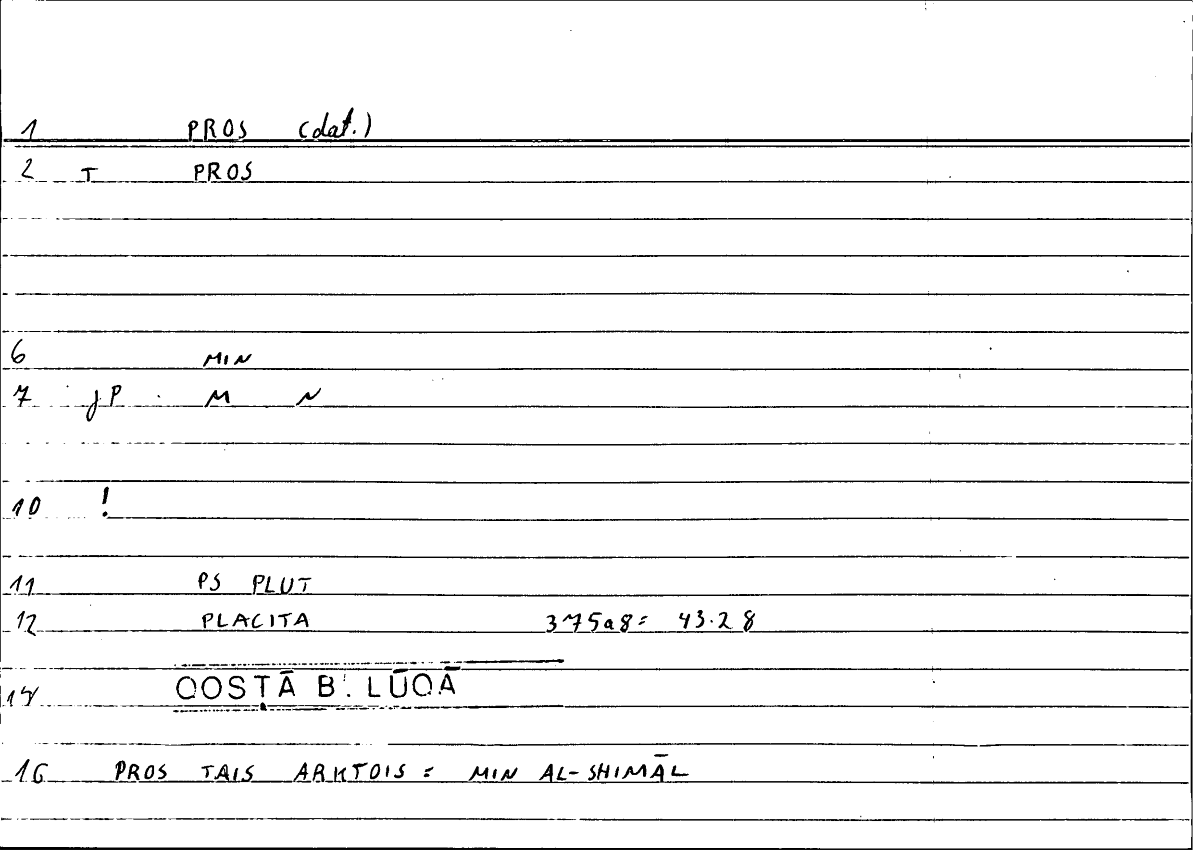 1 PROS (dat.)
2 T PROS
6 MIN
7 JP M N
10 !
11 PS PLUT
12 PLACITA 375a8 = 43.28
14 QOSṬĀ B. LŪQĀ
16 PROS TAIS ARKTOIS = MIN AL-SHIMĀL